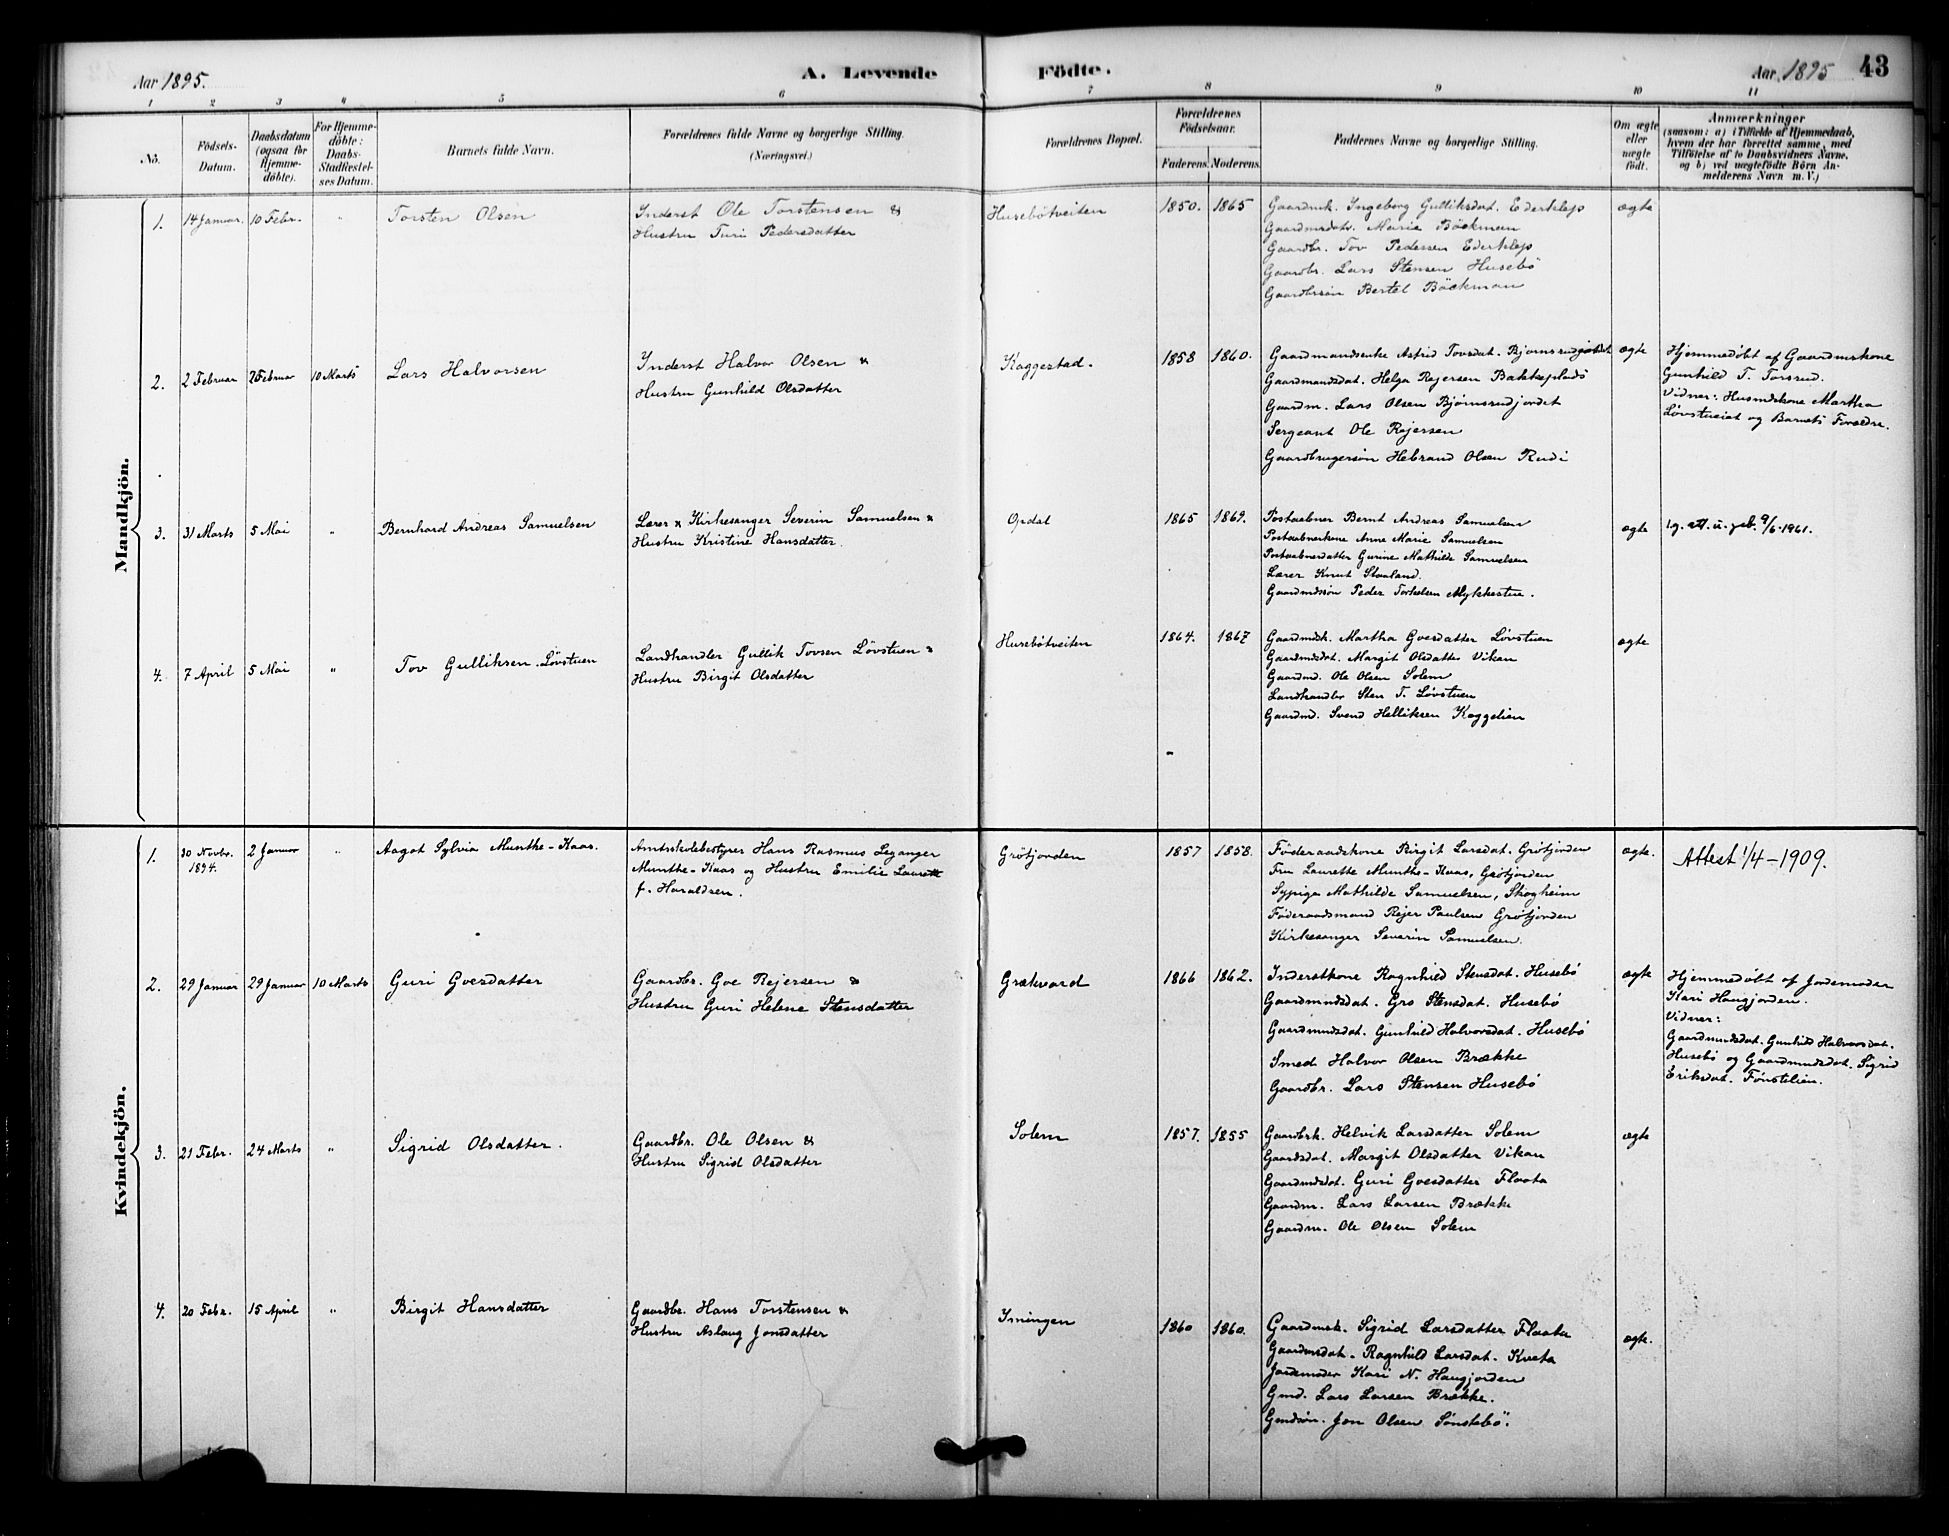 Aar 1895.
A. Levende
Födte.
Aar 1895
43
1 2 3 4 5 6 7 8 9 10 11
No.
Födsels-
Datum.
Daabsdatum
(ogsaa för
Hjemme-
döbte).
For Hjemme-
döbte:
Daabs-
Stadfæstel-
ses Datum.
Barnets fulde Navn.
Forældrenes fulde Navne og borgerlige Stilling.
(Næringsvei.)
Forældrenes Bopæl.
Forældrenes
Födselsaar.
Faderens. Moderens.
Faddernes Navne og borgerlige Stilling.
Om ægte
eller
uægte
födt.
Anmærkninger
(saasom: a) i Tilfælde af Hjemmedaab,
hvem der har forrettet samme, med
Tilföielse af to Daabsvidners Navne,
og b) ved uægtefödte Börn An-
melderens Navn m. V.)
Mandkjön.
1. 14 Januar. 10 Febr. " Torsten Olsen
Inderst Ole Torstensen &
Hustru Turi Pedersdatter
Husebötveiten
1850. 1865
Gaardmk. Ingeborg Gulliksdat. Ederklep
Gaardmsdatr. Marie Böckman
Gaardbr. Tov Pedersen Ederklep
Gaardbr. Lars Stensen Husebö
Gaardbrsön Bertel Böckman
ægte
2. 2 Februar 26 Februar 10 Marts Lars Halvorsen
Inderst Halvor Olsen &
Hustru Gunhild Olsdatter
Kaggestad.
1858 1860.
Gaardmandsenke Astrid Tovsdat. Bjørnsrudjordet
Gaardmandsdat. Helga Rejersen Bakkeplads
Gaardm. Lars Olsen Bjørnsrudjordet
Sergeant Ole Rejersen
Gaardbrugersön Hebrand Olsen Rudi
ægte
Hjemmedøbt af Gaardmskone
Gunhild T. Torsrud.
Vidner: Husmdskone Martha
Løvstueiet og Barnets Forældre.
3. 31 Marts 5 Mai " Bernhard Andreas Samuelsen
Lærer & Kirkesanger Severin Samuelsen &
Hustru Kristine Hansdatter.
Opdal
1865 1869.
Postaabner Bernt Andreas Samuelsen
Postaabnerkone Anne Marie Samuelsen
Postaabnerdatter Gurine Mathilde Samuelsen
Lærer Knut Staaland.
Gaardmdssön Peder Torkelsen Mykkestue.
ægte
l.g. att. u. geb. 9/6-1961.
4. 7 April 5 Mai " Tov Gulliksen. Løvstuen
Landhandler Gullik Tovsen Løvstuen &
Hustru Birgit Olsdatter
Husebötveiten
1864. 1867
Gaardmdk. Martha Gvesdatter Løvstuen
Gaardmdsdat. Margit Olsdatter Vikan
Gaardmd. Ole Olsen Solem
Landhandler Sten T. Løvstuen
Gaardmd. Svend Helliksen Kaggelien
ægte
Kvindekjön.
1. 30 Novbr.
1894. 2 Januar " Aagot Sylvia Munthe-Kaas.
Amtsskolebestyrer Hans Rasmus Leganger
Munthe-Kaas og Hustru Emilie Laurette
f. Haraldsen.
Grötjorden
1857 1858.
Föderaadskone Birgit Larsdat. Grötjorden
Fru Laurette Munthe-Kaas, Grötjorden
Sypige Mathilde Samuelsen, Skogheim
Föderaadsmand Rejer Paulsen Grötjorden
Kirkesanger Severin Samuelsen.
ægte.
Attest 1/4-1909.
2. 29 Januar 29 Januar 10 Marts Guri Gvesdatter
Gaardbr. Gve Rejersen &
Hustru Guri Helene Stensdatter
Grækvard
1866 1862.
Inderstkone Ragnhild Stensdat. Husebö
Gaardmndsdat. Gro Stensdat. Husebö
Gaardmndsdat. Gunhild Halvorsdat. Husebö
Smed Halvor Olsen Brække
Gaardbr. Lars Stensen Husebö
ægte
Hjemmedøbt af Jordemoder
Kari Haugjorden.
Vidner:
Gaardmndsdat. Gunhild Halvorsdat.
Husebö og Gaardmndsdat. Sigrid
Eriksdat. Fønstelien.
3. 21 Febr. 24 Marts " Sigrid Olsdatter.
Gaardbr. Ole Olsen &
Hustru Sigrid Olsdatter
Solem
1857. 1855
Gaardbrk. Helvik Larsdatter Solem
Gaardsdat. Margit Olsdatter Vikan
Gaardmdsdat. Guri Gvesdatter Flaata
Gaardm. Lars Larsen Brække
Gaardm. Ole Olsen Solem
ægte
4. 20 Febr. 15 April " Birgit Hansdatter
Gaardbr. Hans Torstensen &
Hustru Aslaug Jonsdatter
Imingen
1860 1860.
Gaardmsk. Sigrid Larsdatter Flaata
Gaardmsdat. Ragnhild Larsdat. Kvata
Jordemoder Kari N. Haugjorden
Gmd. Lars Larsen Brække.
Gmdsön. Jon Olsen Sönstebö.
ægte.